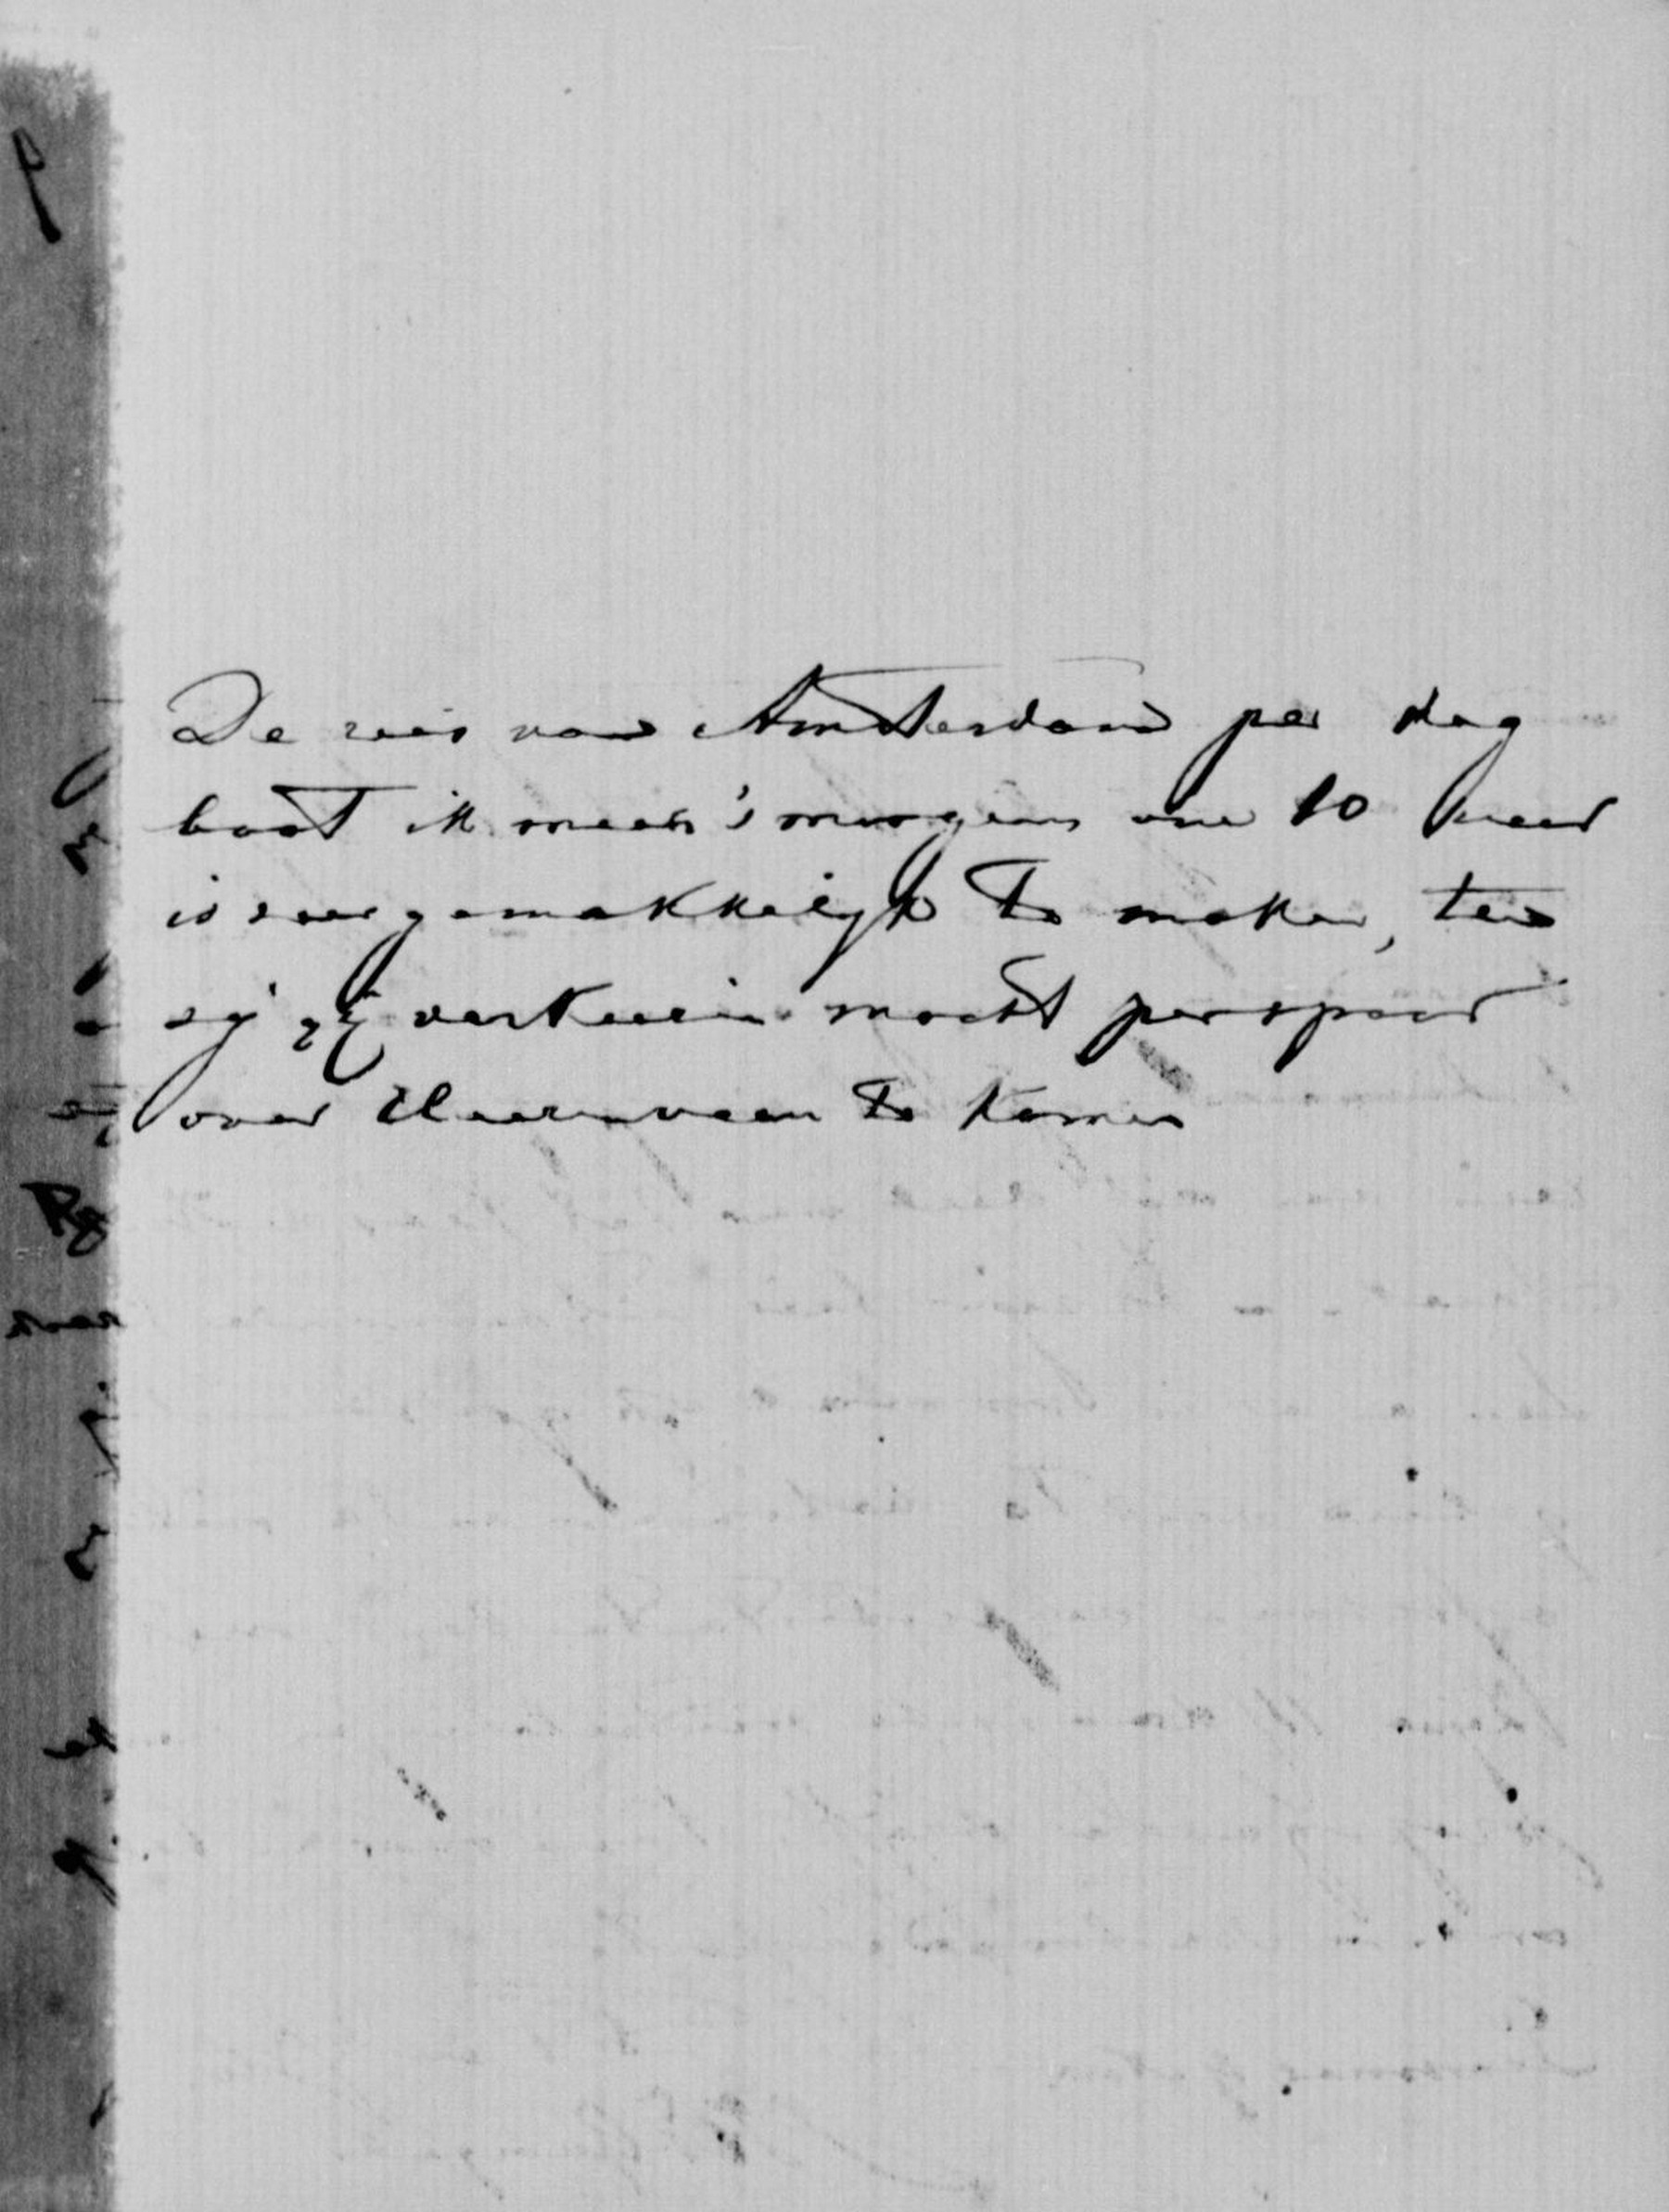 De reis van Amsterdam per dag
boot ik meen 's morgens om 10 uur
is zeer gemakkelijk te maken, ten
zij gij verkiezen mocht per spoor
over Heerenveen te komen